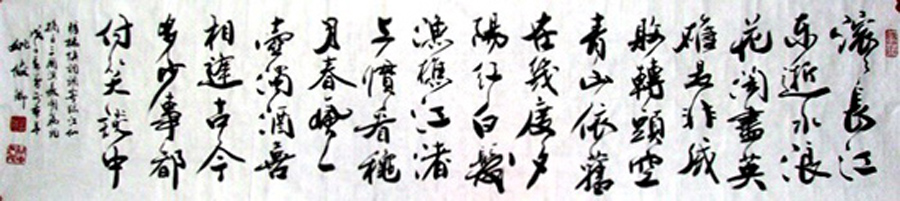 滚々長江
东逝水浪
花淘盡英
雄是非成
敗轉頭空
青山依舊
在幾度夕
陽红白髮
漁樵江渚
上慣看穐
月春風一
壺濁酒喜
相逢古今
多少事都
付笑談中